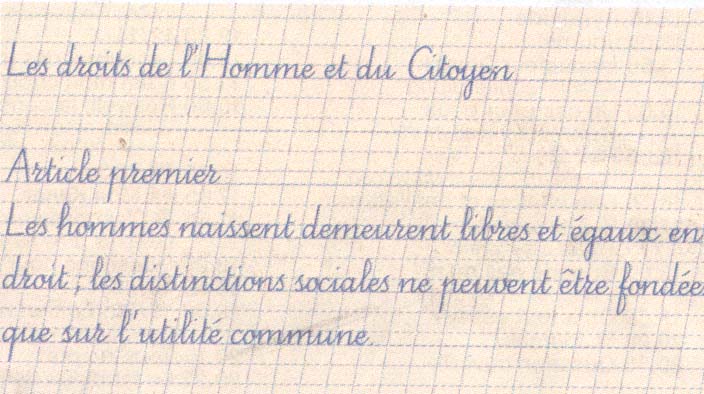 Les droits de l'Homme et du Citoyen
Article premier
Les hommes naissent demeurent libres et égaux en
droit ; les distinctions sociales ne peuvent être fondées
que sur l'utilité commune.